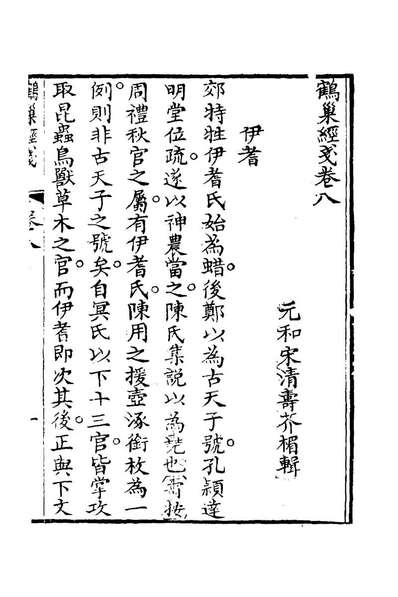 鶴巢經箋卷八
元和宋清壽芥楣輯
伊耆
郊特牲伊耆氏始為蜡。後鄭以為古天子號。孔穎達
明堂位疏。遂以神農當之。陳氏集說以為堯也。壽按
周禮秋官之屬。有伊耆氏。陳用之援壺涿銜枚為一
例。則非古天子之號矣。自冥氏以下十三官。皆掌攻
取昆蟲鳥獸草木之官。而伊耆即次其後。正與下文
鶴巢經箋
卷八
一